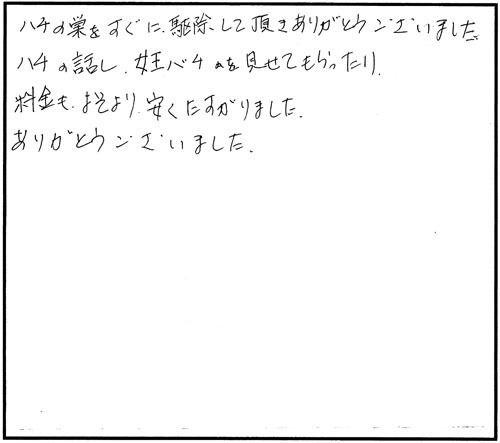 ハチの巣をすぐに、駆除して頂きありがとうございました。
ハチの話し、女王バチを見せてもらったり、
料金も、よそより、安くたすかりました。
ありがとうございました。